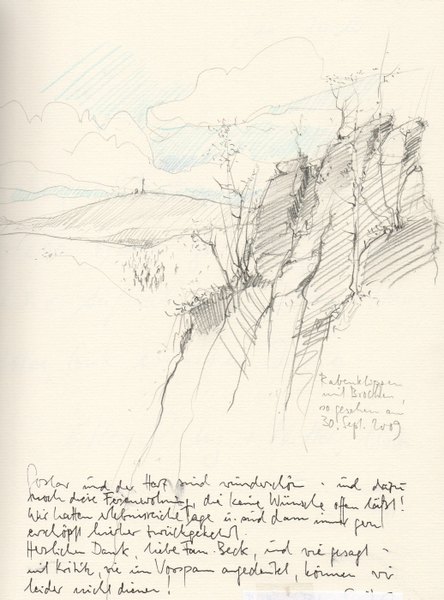 Rabenklippen
mit Brocken,
so gesehen am
30. Sept. 2009
Goslar und der Harz sind wunderschön - und dazu
noch diese Ferienwohnung, die keine Wünsche offen läßt!
Wir hatten erlebnisreiche Tage u. sind dann immer gern
erschöpft hierher zurückgekehrt.
Herzlichen Dank, liebe Fam. Beck, und wie gesagt -
mit Kritik, wie im Vorspann angedeutet, können wir
leider nicht dienen!